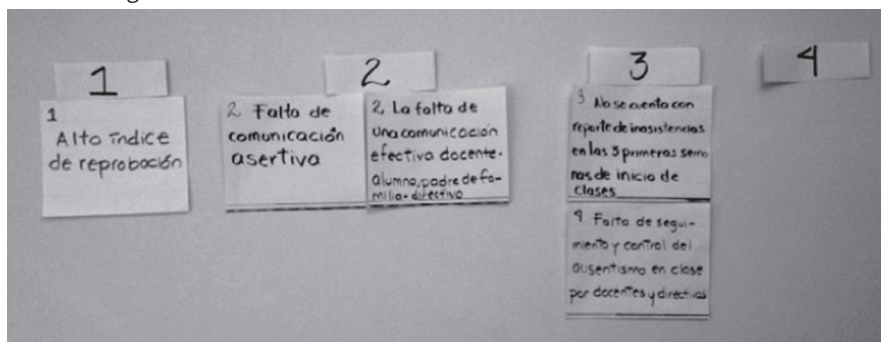 1
1
Alto índice
de reprobación
2
2 Falta de
comunicación
asertiva
2, La falta de
una comunicación
efectiva docente-
alumno, padre de fa-
milia-directivo
3
3 No se cuenta con
reporte de inasistencias
en las 3 primeras sema
nas de inicio de
clases
9 Falta de segui-
miento y control del
ausentismo en clase
por docentes y directivos
4